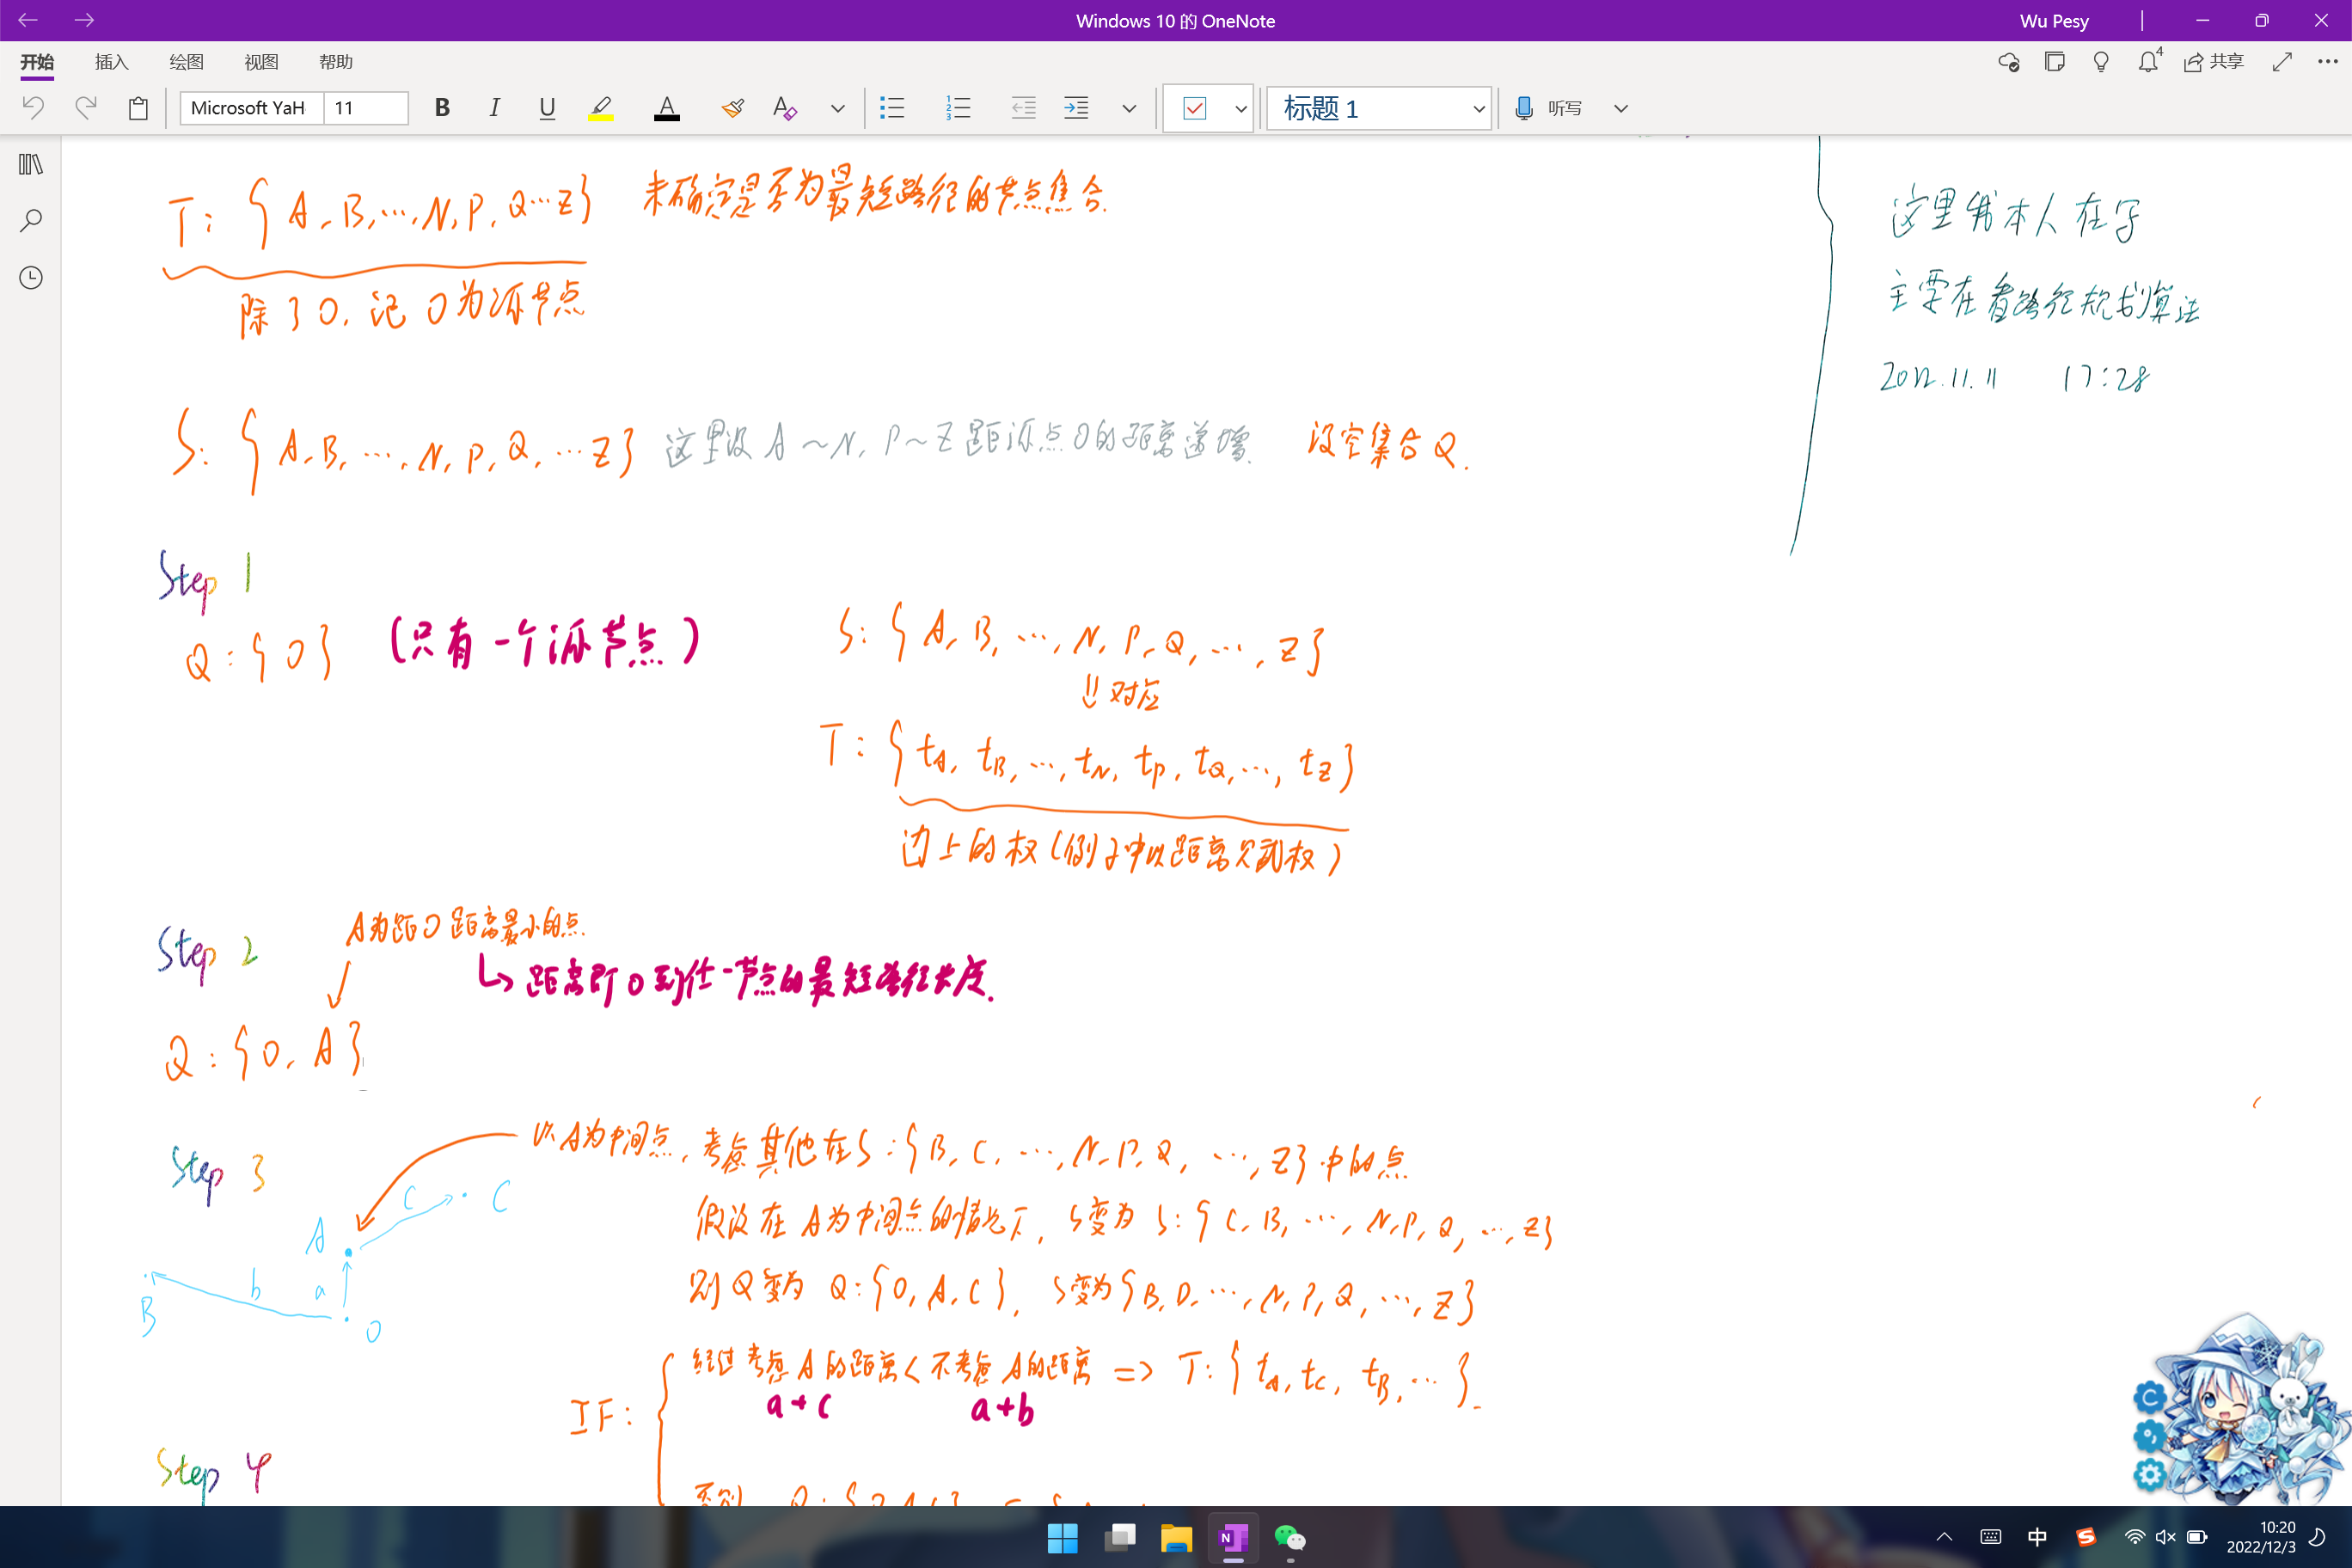 Windows 10 的 OneNote
Wu Pesy
开始 插入 绘图 视图 帮助
4 共享
Microsoft YaH 11 B I U A A 标题 1 听写
T: { A, B, …, N, P, Q … Z } 未确定是否为最短路径的节点集合.
除了O, 记O为源节点
这里我本人在写
主要在看路径规划算法
2022.11.11 17:28
S: { A, B, …, N, P, Q, … Z } 这里设 A ~ N, P ~ Z 距源点O的距离递增. 设空集合 Q.
Step 1
Q: { O } (只有一个源节点)
S: { A, B, …, N, P, Q, …, Z }
⇓ 对应
T: { tA, tB, …, tN, tP, tQ, …, tZ }
边上的权(例子中以距离为权)
Step 2
A为距O距离最小的点.
↳ 距离即O到任一节点的最短路径长度.
Q: { O, A }
Step 3
以A为中间点, 考虑其他在S: { B, C, …, N, P, Q, …, Z } 中的点
假设在A为中间点的情况下, S变为 S: { C, B, …, N, P, Q, …, Z }
则Q变为 Q: { O, A, C }, S变为 { B, D, …, N, P, Q, …, Z }
A B C O a b c
IF: 经过考虑A的距离 < 不考虑A的距离 => T: { tA, tC, tB, … }
a + c a + b
Step 4
否则
中 S
10:20
2022/12/3